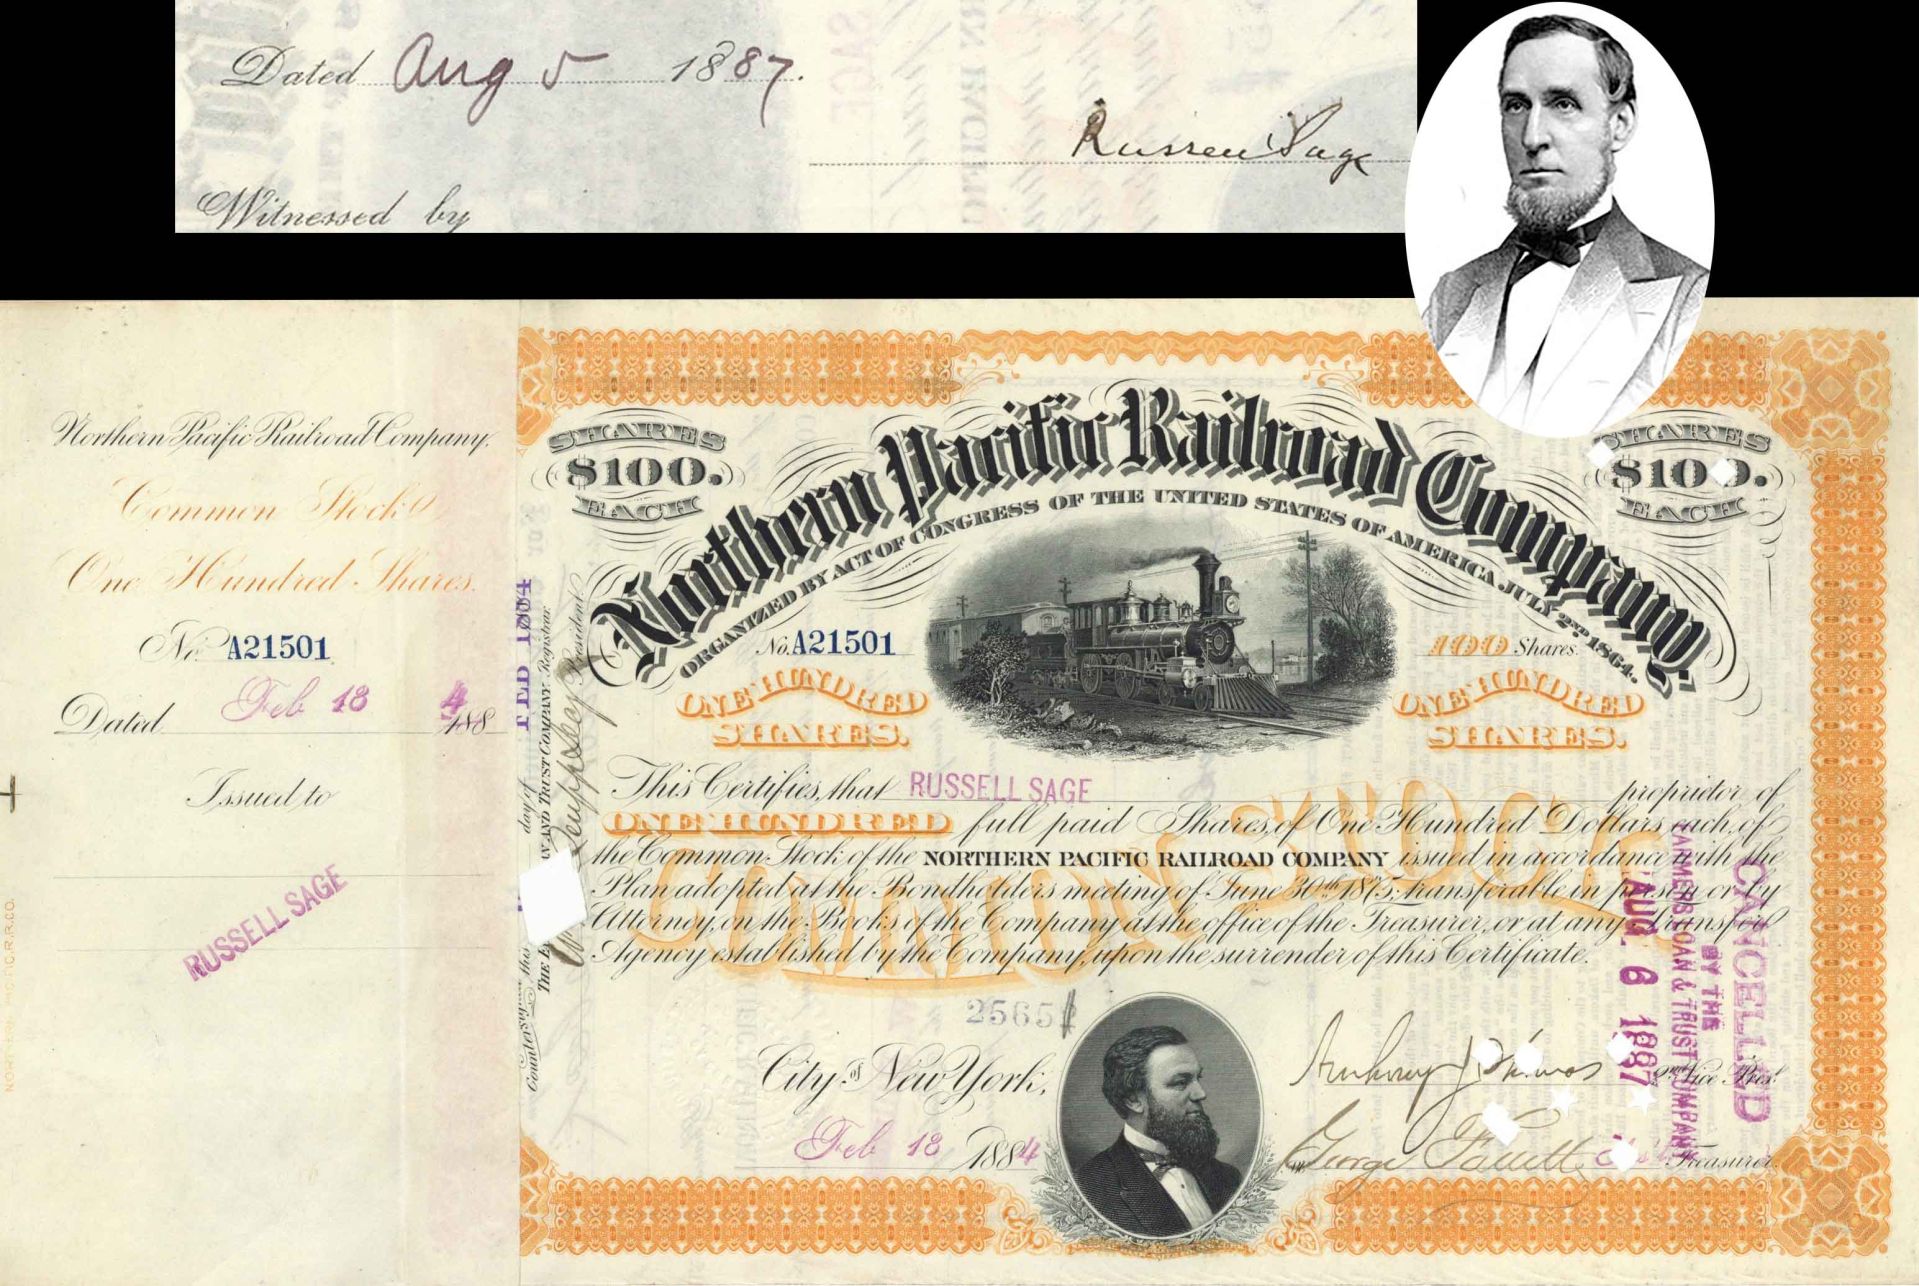 Dated Aug 5 1887.
Russell Sage
Witnessed by
Northern Pacific Railroad Company.
Common Stock
One Hundred Shares.
No. A21501
Dated Feb 18 1884
Issued to
RUSSELL SAGE
NORTHERN PACIFIC R.R.CO.
Countersigned this day of FEB 1884
THE FARMERS LOAN AND TRUST COMPANY. Registrar
President
SHARES
$100.
EACH
SHARES
$100.
EACH
Northern Pacific Railroad Company.
ORGANIZED BY ACT OF CONGRESS OF THE UNITED STATES OF AMERICA, JULY 2ND 1864.
No. A21501
100 Shares.
ONE HUNDRED
SHARES.
ONE HUNDRED
SHARES.
This Certifies, that RUSSELL SAGE proprietor of
ONE HUNDRED full paid Shares, of One Hundred Dollars each, of
the Common Stock of the NORTHERN PACIFIC RAILROAD COMPANY issued in accordance with the
Plan adopted at the Bondholders meeting of June 30th 1875; transferable in person or by
Attorney, on the Books of the Company at the office of the Treasurer, or at any Transfer
Agency established by the Company, upon the surrender of this Certificate.
COMMON STOCK
2565
City of New York,
Feb 18 1884
Anthony J. Thomas 2nd Vice Prest.
George Treasurer
CANCELLED
BY THE
FARMERS LOAN & TRUST COMPANY
AUG 6 1887